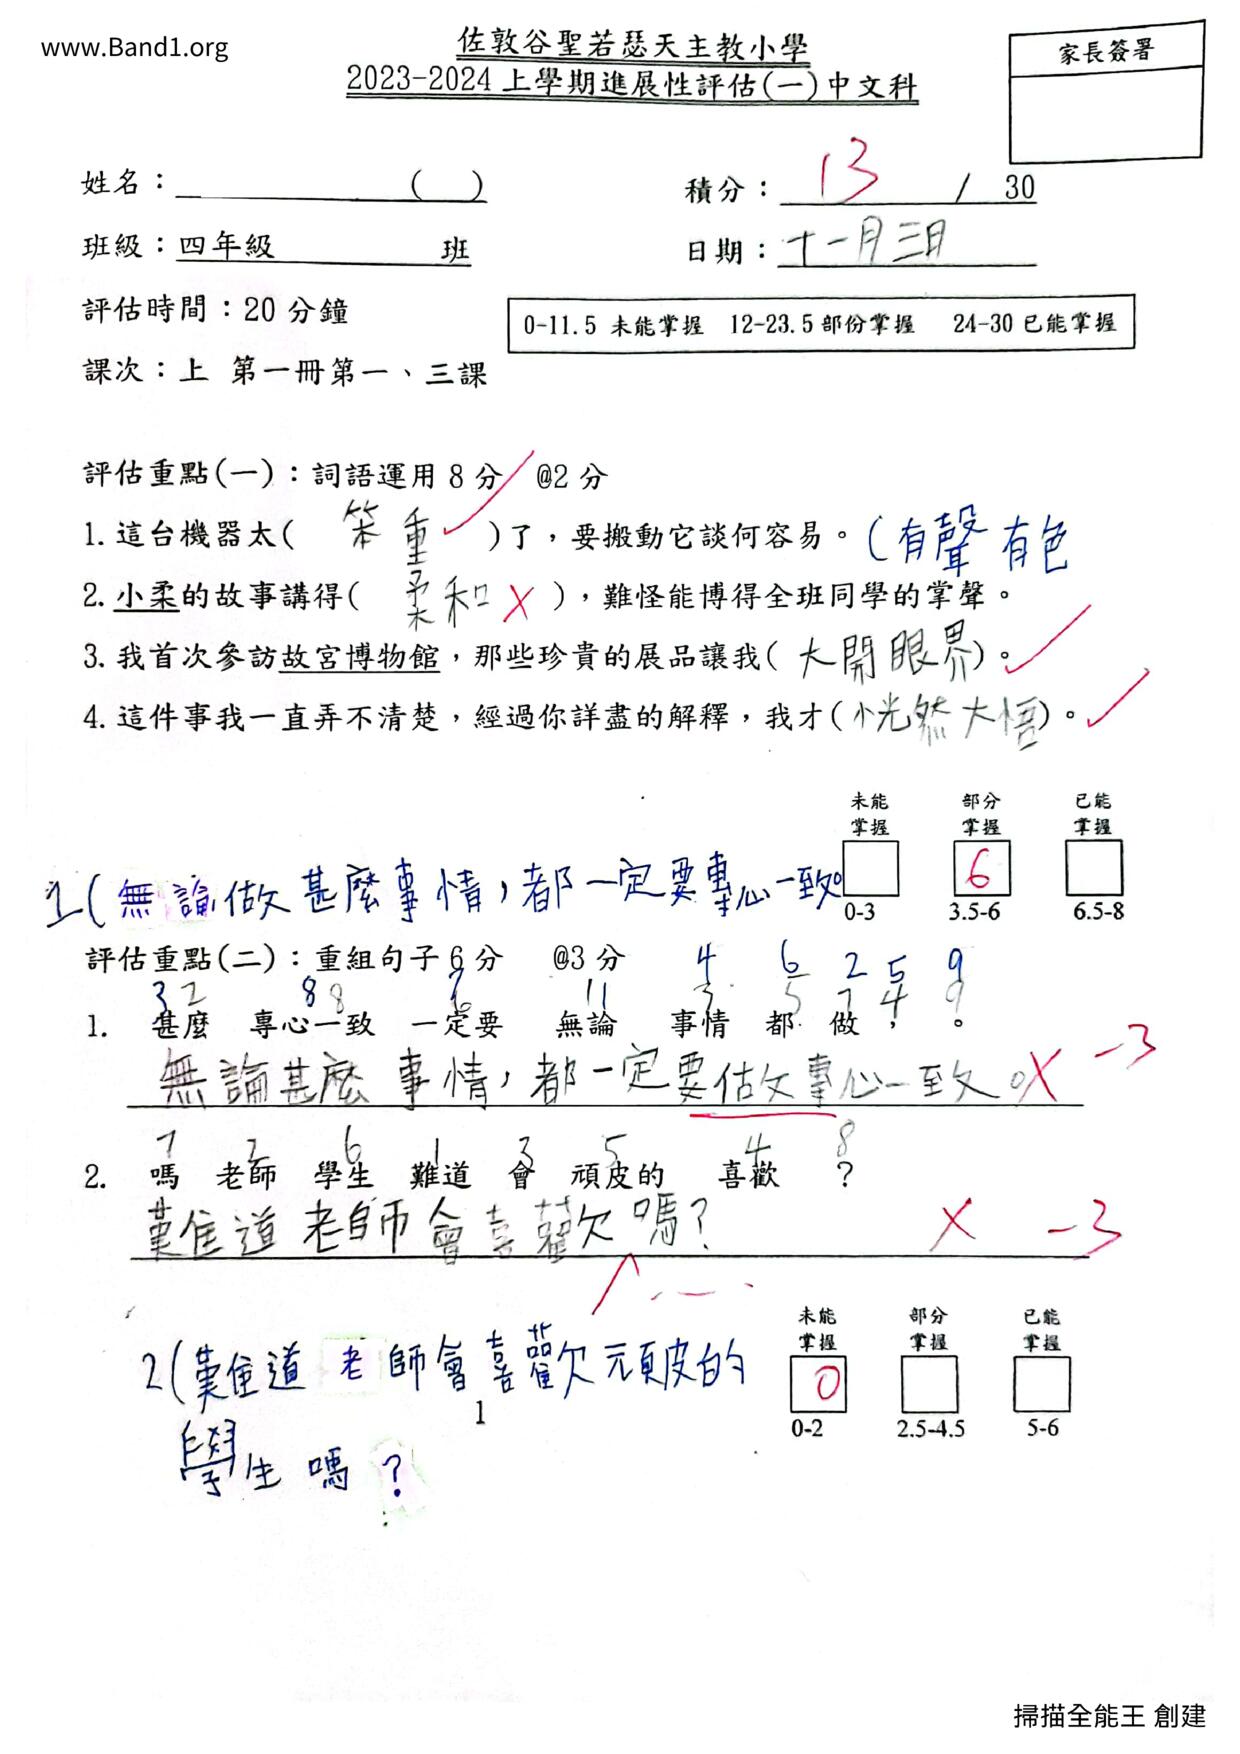 www.Band1.org
佐敦谷聖若瑟天主教小學
2023-2024上學期進展性評估(一)中文科
家長簽署
姓名：( )
積分：13 / 30
班級：四年級 班
日期：十一月三日
評估時間：20 分鐘
0-11.5 未能掌握 12-23.5 部份掌握 24-30 已能掌握
課次：上 第一冊第一、三課
評估重點(一)：詞語運用 8 分 @2 分
1. 這台機器太( 笨重 )了，要搬動它談何容易。(有聲有色
2. 小柔的故事講得( 柔和 )，難怪能博得全班同學的掌聲。
3. 我首次參訪故宮博物館，那些珍貴的展品讓我( 大開眼界 )。
4. 這件事我一直弄不清楚，經過你詳盡的解釋，我才(恍然大悟)。
未能掌握 部分掌握 已能掌握
6
0-3 3.5-6 6.5-8
1(無論做甚麼事情，都一定要專心一致。
評估重點(二)：重組句子 6 分 @3 分
4 6 2 5 9
3 2 8 8 7 6 1 1 3 5 7 4 9
1. 甚麼 專心一致 一定要 無論 事情 都 做 ， 。
無論甚麼事情，都一定要做專心一致。 -3
7 2 6 1 3 5 4 8
2. 嗎 老師 學生 難道 會 頑皮的 喜歡 ？
難道老師會喜歡嗎？ -3
未能掌握 部分掌握 已能掌握
0
0-2 2.5-4.5 5-6
2(難道老師會喜歡頑皮的
學生嗎？
1
掃描全能王 創建